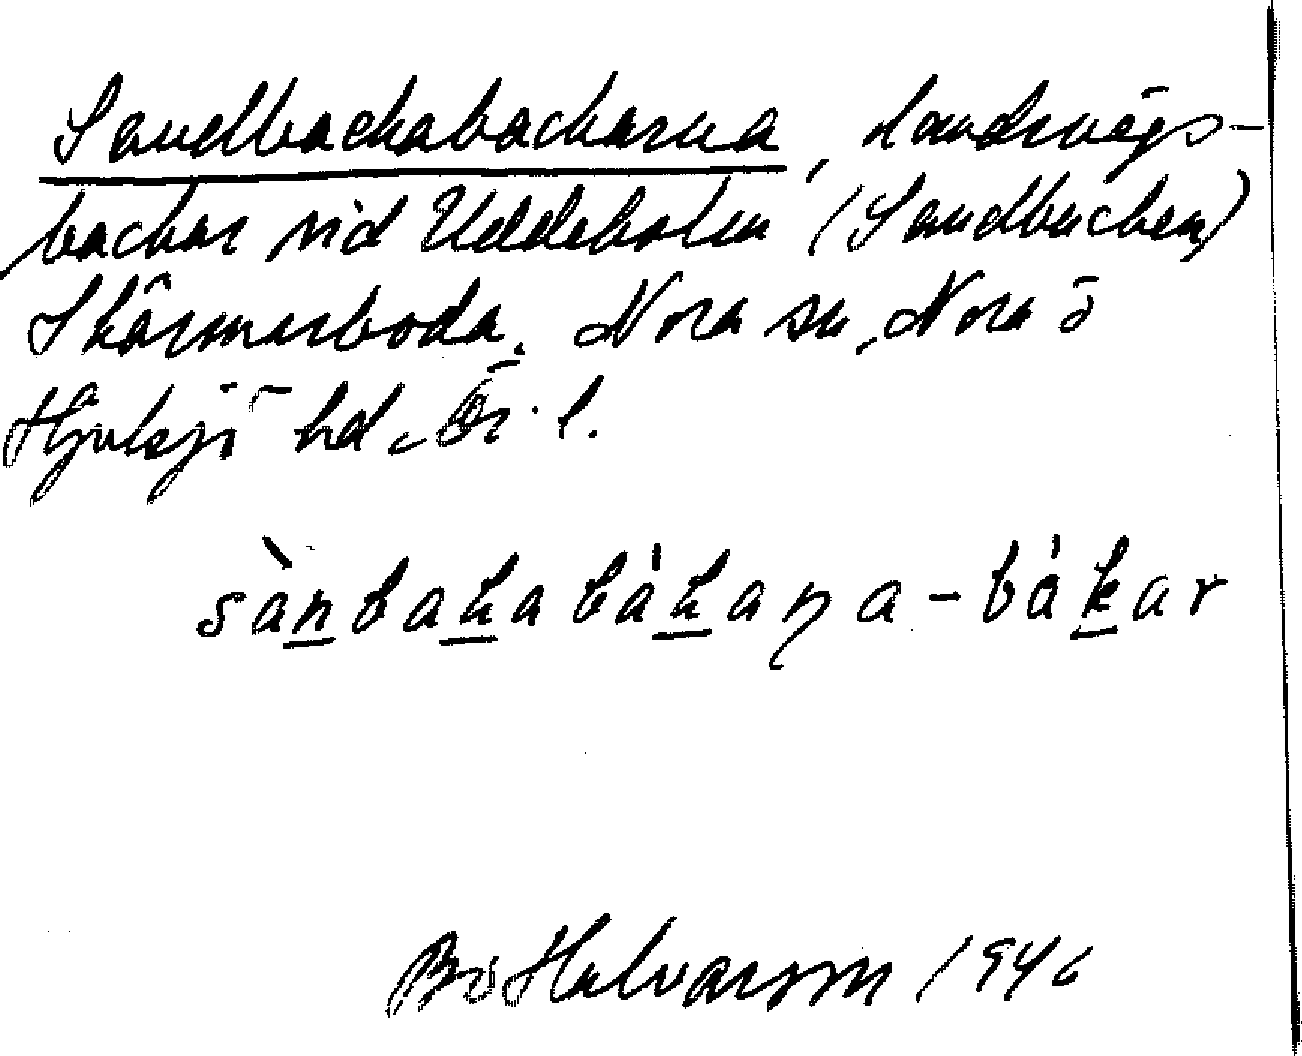 Sandbackabackarna, landsvägs-
backar vid Uddeholm (Sandbacken)
Skärmarboda. Nora sn, Nora o
Hjulsjö hd. Ör. l.
sàn̲bak̲abàk̲aṇa - bàk̲ar
Bo Halvarsson 1946